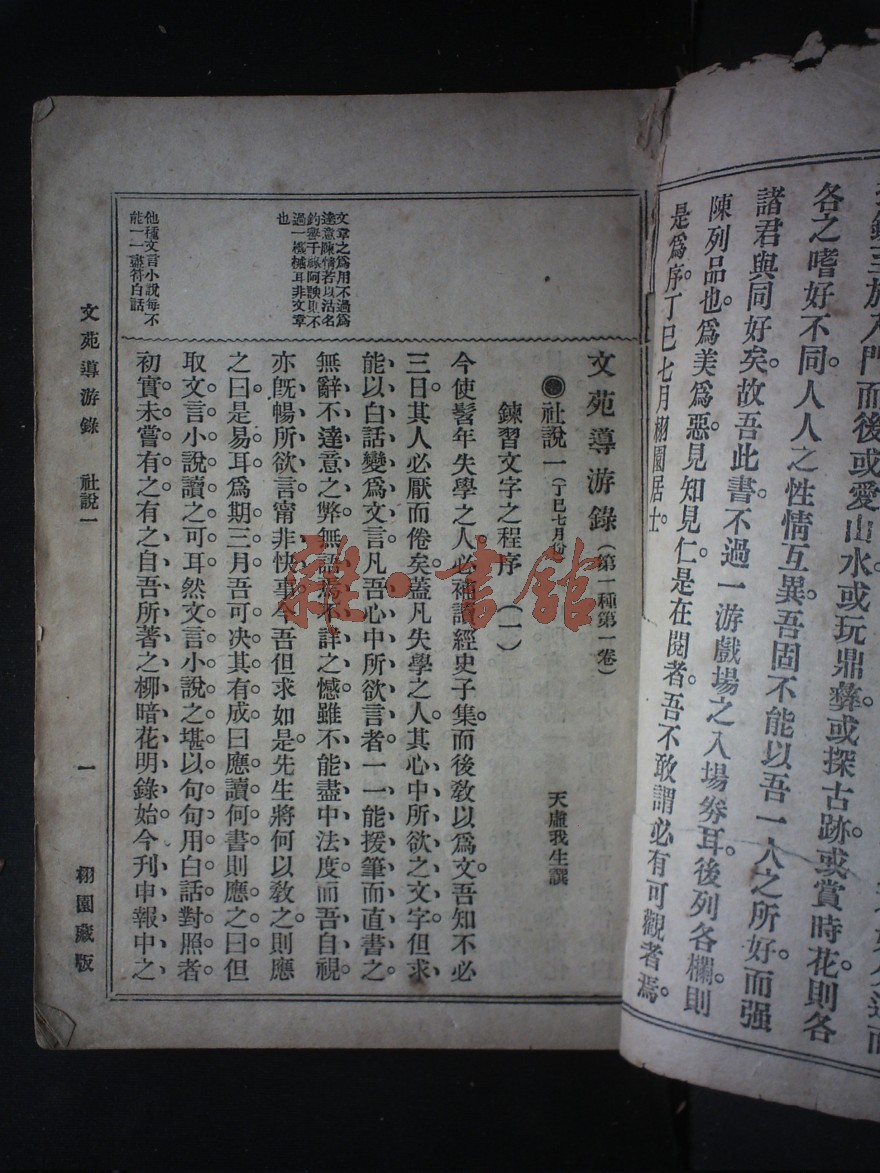 而後或愛山水或玩鼎彝或探古跡或賞時花則各
各之嗜好不同人人之性情互異吾固不能以吾一人之所好而强
諸君與同好矣故吾此書不過一游戲場之入場券耳後列各欄則
陳列品也爲美爲惡見知見仁是在閱者吾不敢謂必有可觀者焉
是爲序丁巳七月栩園居士。
文苑導游錄(第一種第一卷)
社說一(丁巳七月份)
天虛我生撰
鍊習文字之程序(一)
今使髫年失學之人必補讀經史子集。而後敎以爲文。吾知不必
三日。其人必厭而倦矣。蓋凡失學之人。其心中所欲之文字。但求
能以白話變爲文言。凡吾心中所欲言者、一一能援筆而直書之、
無辭不達意之弊、無語焉不詳之憾、雖不能盡中法度、而吾自視、
亦旣暢所欲言、甯非快事、今吾但求如是、先生將何以敎之。則應
之曰。是易耳。爲期三月。吾可決其有成。曰應讀何書。則應之曰。但
取文言小說讀之可耳。然文言小說之堪以句句用白話對照者。
初實未嘗有之。有之自吾所著之柳暗花明錄始。今刋申報中之
文章之爲用不過爲
達意陳情若以沽名
釣譽干祿阿諛則不
過一機械耳非文章
也
他種文言小說每不
能一一盡符白話
文苑導游錄 社說一 一 栩園藏版
雜·書館